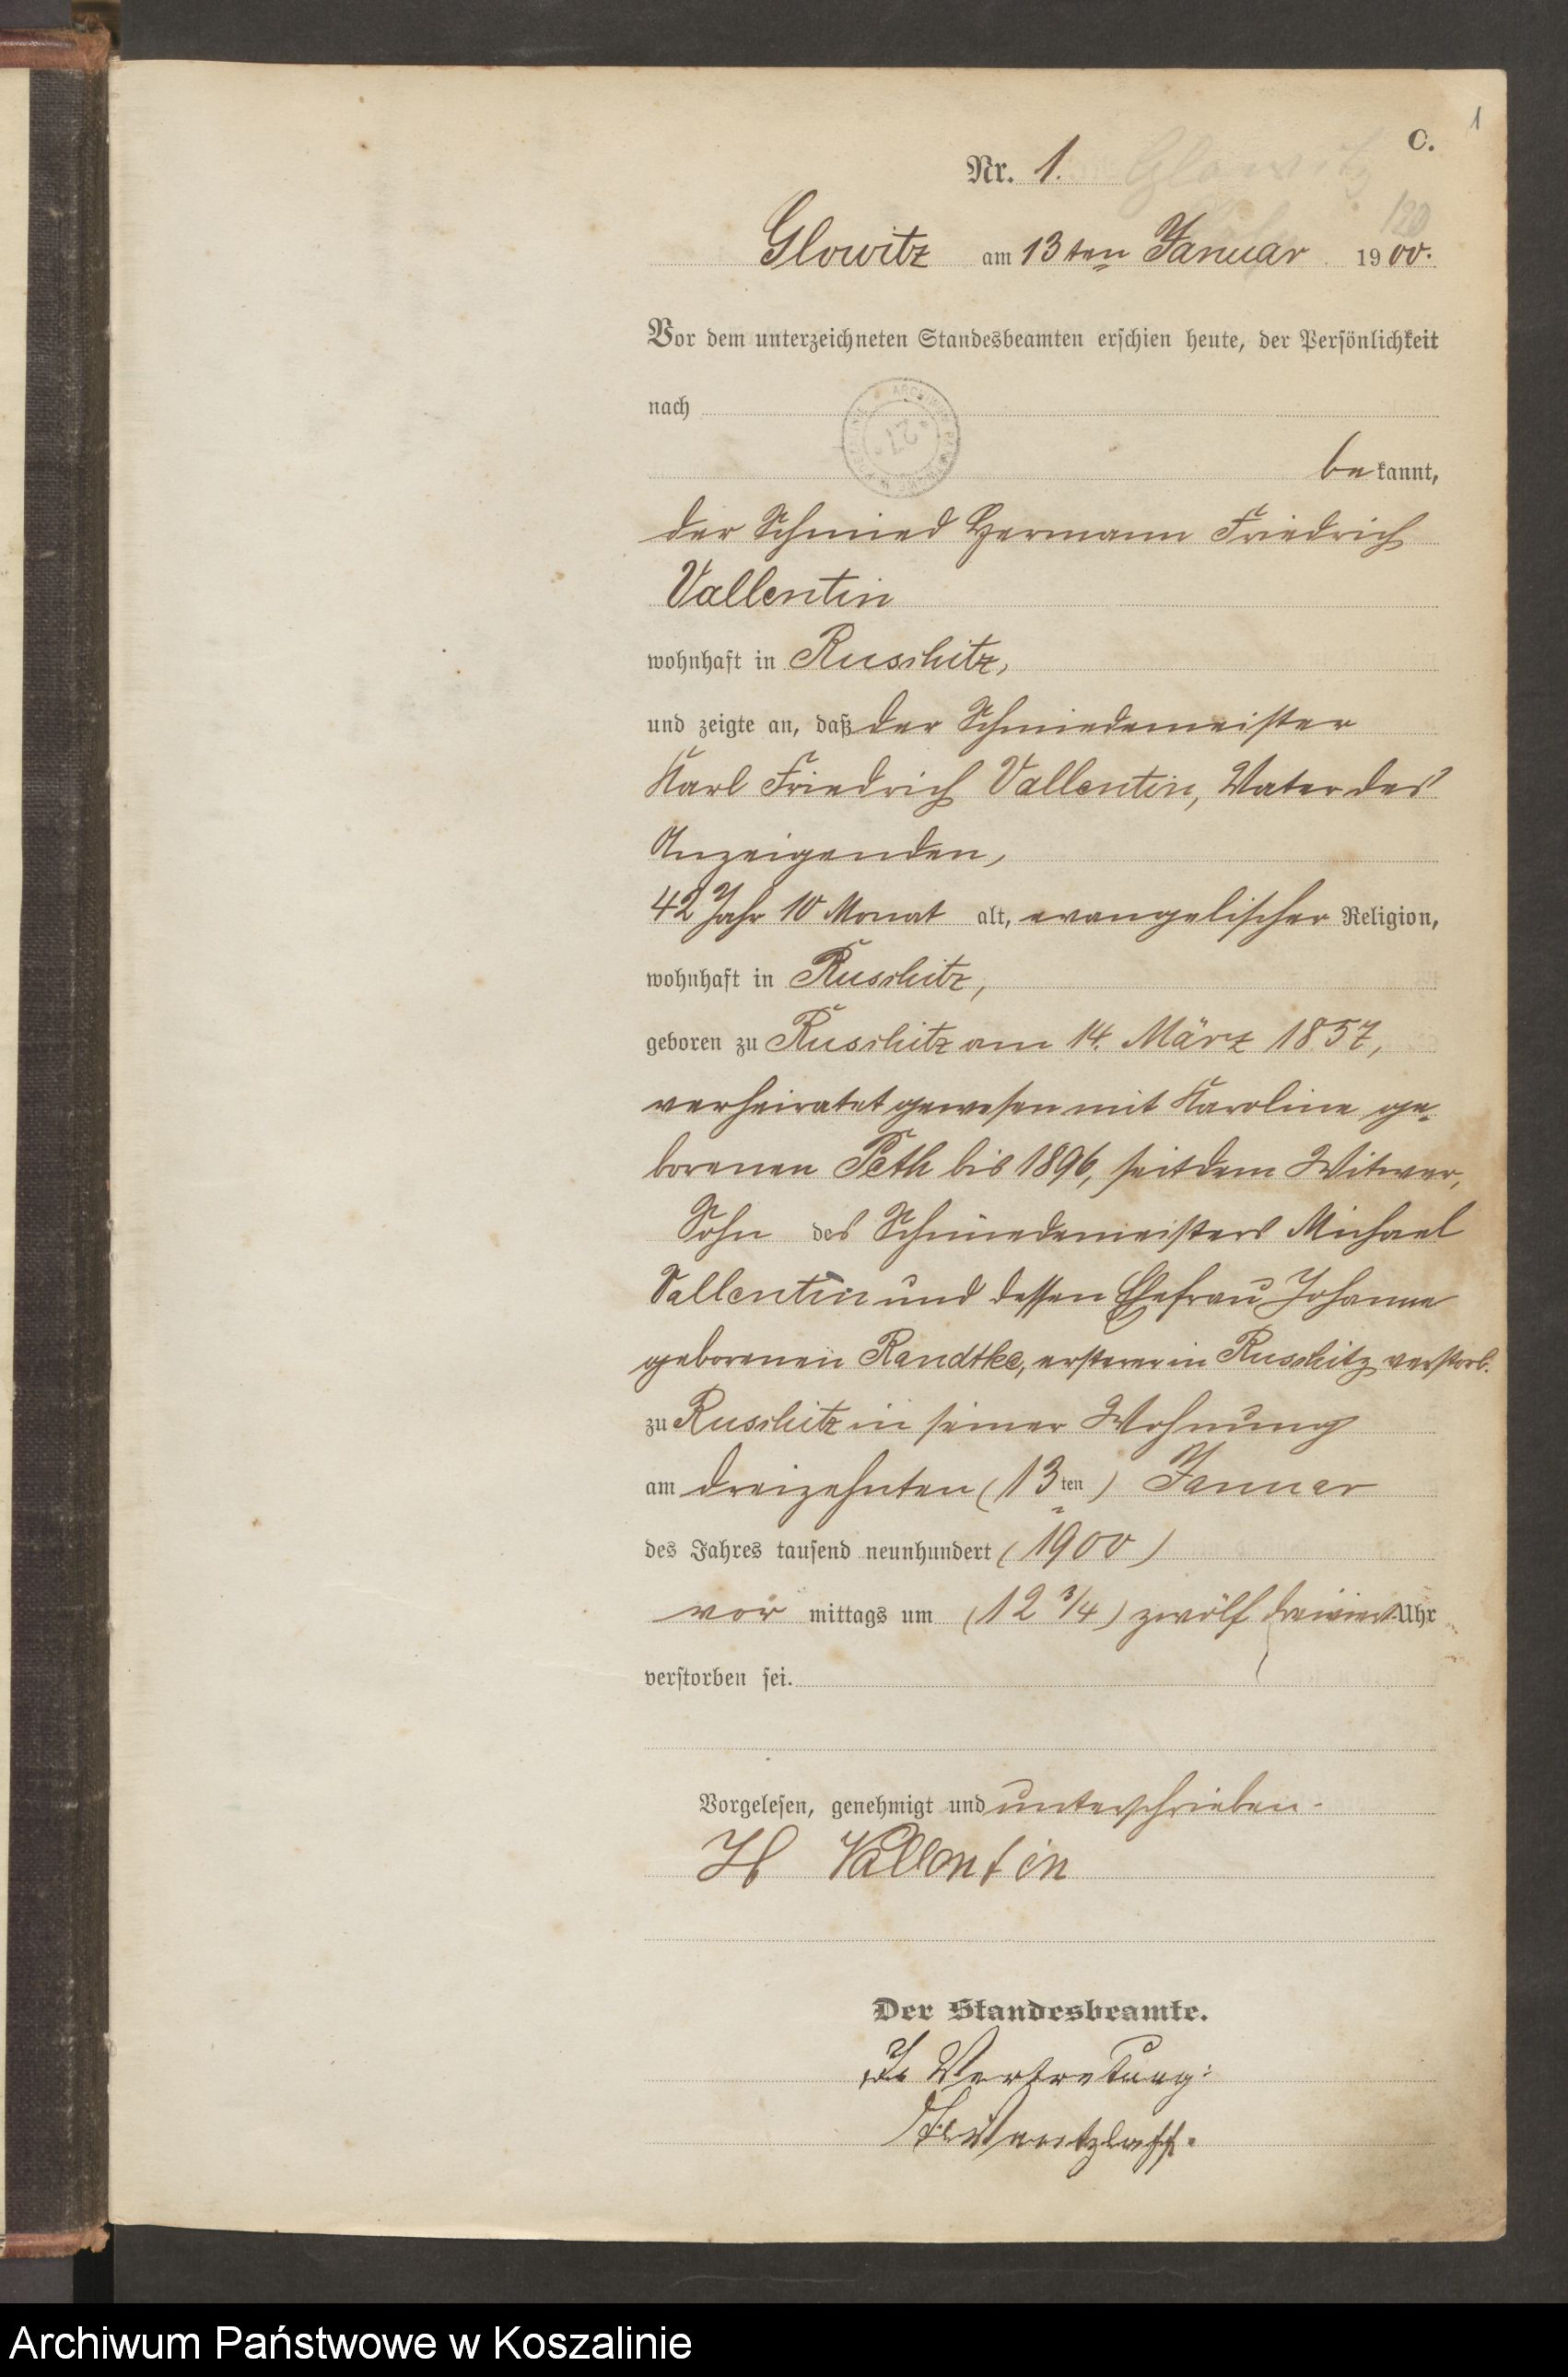 1
C.
Nr. 1.
Glowitz
120
Glowitz am 13ten Januar 1900.
Vor dem unterzeichneten Standesbeamten erschien heute, der Persönlichkeit
nach
bekannt,
der Schmied Hermann Friedrich
Vallentin
wohnhaft in Russchitz,
und zeigte an, daß der Schmiedemeister
Karl Friedrich Vallentin, Vater des
Anzeigenden,
42 Jahr 10 Monat alt, evangelischer Religion,
wohnhaft in Russchitz,
geboren zu Russchitz am 14. März 1857,
verheiratet gewesen mit Karoline ge-
borenen Peth bis 1896, seitdem Witwer,
Sohn des Schmiedemeisters Michael
Vallentin und dessen Ehefrau Johanne
geborenen Randtke, ersterer in Russchitz verstorb.
zu Russchitz in seiner Wohnung
am dreizehnten (13ten) Januar
des Jahres tausend neunhundert (1900)
vor mittags um (12 3/4) zwölf dreiviertel Uhr
verstorben sei.
Vorgelesen, genehmigt und unterschrieben.
H Vallentin
Der Standesbeamte.
In Vertretung:
Archiwum Państwowe w Koszalinie